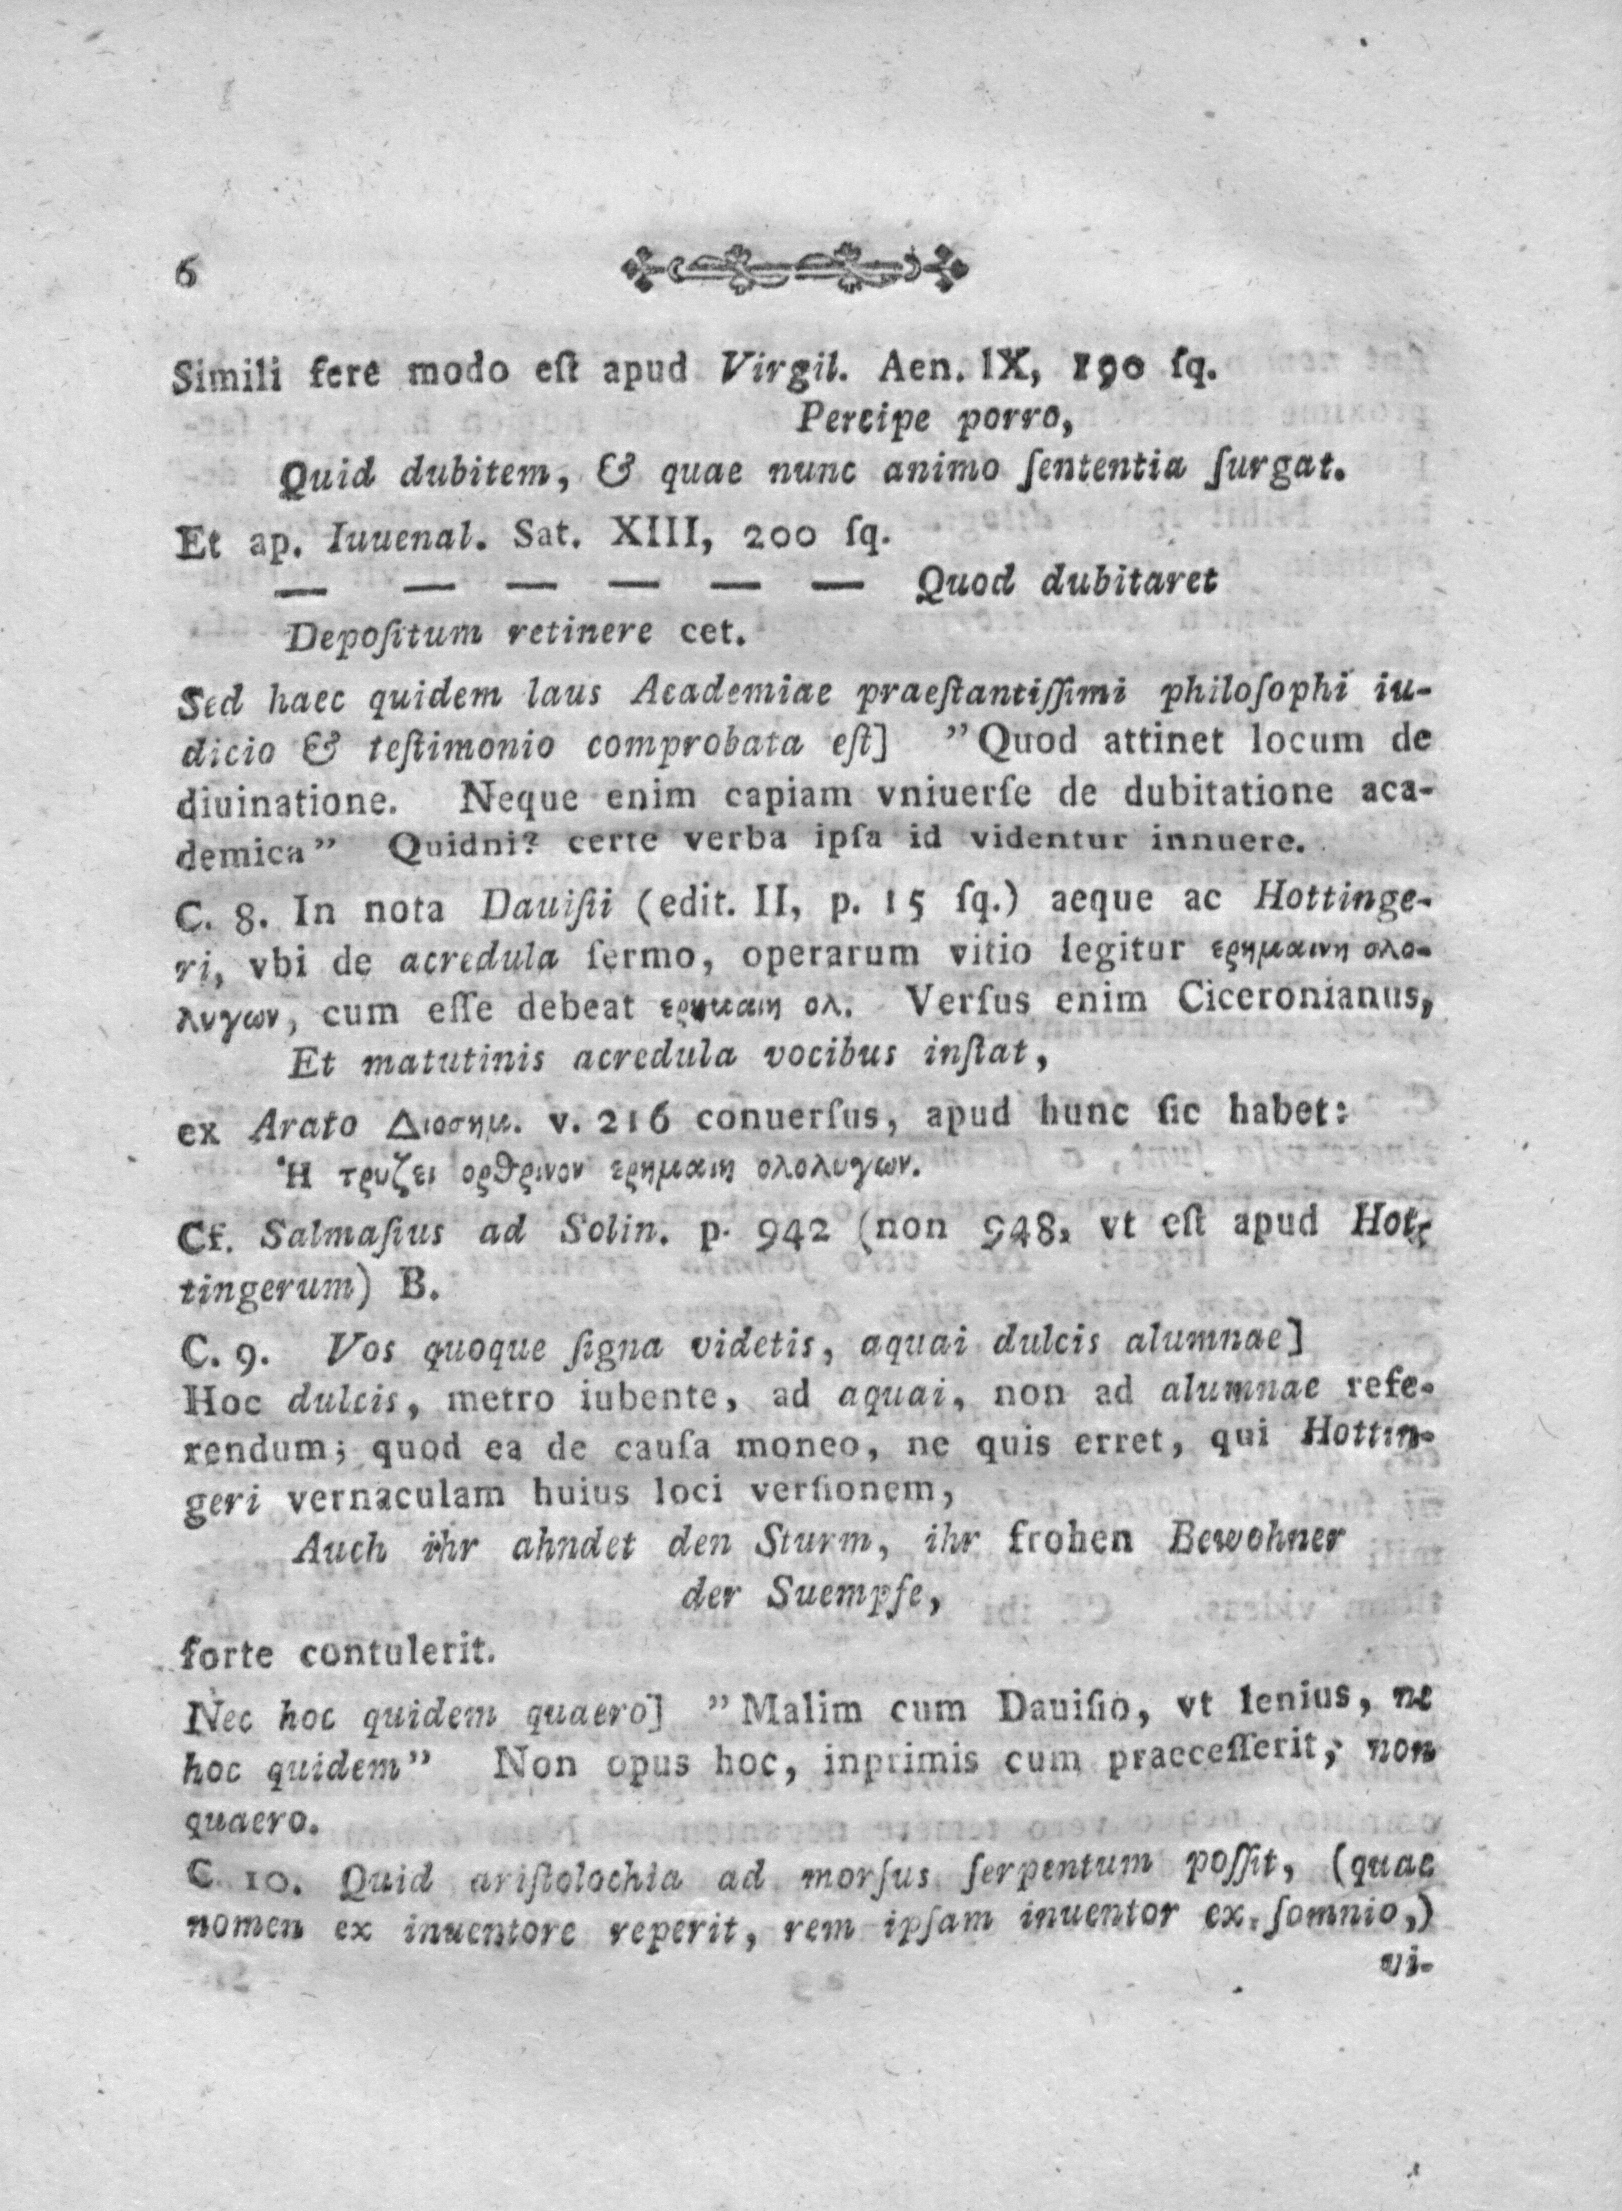 6
Simili fere modo eſt apud Virgil. Aen. IX, 190 ſq.
Percipe porro,
Quid dubitem, & quae nunc animo ſententia ſurgat.
Et ap. Iuuenal. Sat. XIII, 200 ſq.
— — — — — — Quod dubitaret
Depoſitum retinere cet.
Sed haec quidem laus Academiae praeſtantiſſimi philoſophi iu-
dicio & teſtimonio comprobata eſt] ”Quod attinet locum de
diuinatione. Neque enim capiam vniuerſe de dubitatione aca-
demica” Quidni? certe verba ipſa id videntur innuere.
C. 8. In nota Dauiſii (edit. II, p. 15 ſq.) aeque ac Hottinge-
ri, vbi de acredula ſermo, operarum vitio legitur ερημαινη ολο-
λυγων, cum eſſe debeat ερημαιη ολ. Verſus enim Ciceronianus,
Et matutinis acredula vocibus inſtat,
ex Arato Διοσημ. v. 216 conuerſus, apud hunc ſic habet:
Ἡ τρυζει ορθρινον ερημαιη ολολυγων.
Cf. Salmaſius ad Solin. p. 942 (non 948, vt eſt apud Hot-
tingerum) B.
C. 9. Vos quoque ſigna videtis, aquai dulcis alumnae]
Hoc dulcis, metro iubente, ad aquai, non ad alumnae refe-
rendum; quod ea de cauſa moneo, ne quis erret, qui Hottin-
geri vernaculam huius loci verſionem,
Auch ihr ahndet den Sturm, ihr frohen Bewohner
der Suempfe,
forte contulerit.
Nec hoc quidem quaero] ”Malim cum Dauiſio, vt lenius, ne
hoc quidem” Non opus hoc, inprimis cum praeceſſerit, non
quaero.
C 10. Quid ariſtolochia ad morſus ſerpentum poſſit, (quae
nomen ex inuentore reperit, rem ipſam inuentor ex ſomnio,)
vi-